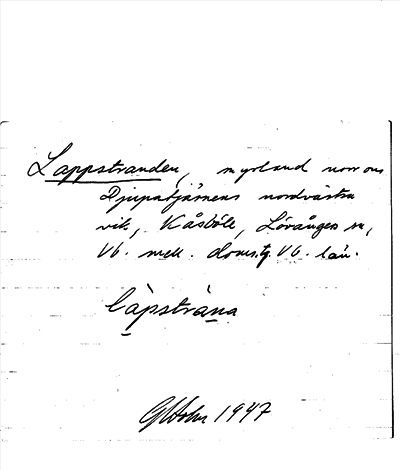 Lappstranden, myrland norr om
Djupatjärnens nordvästra
vik, Kåsböle, Lövångers sn,
Vb. mell. doms.tg. Vb. län.
làpstràna
GHolm 1947